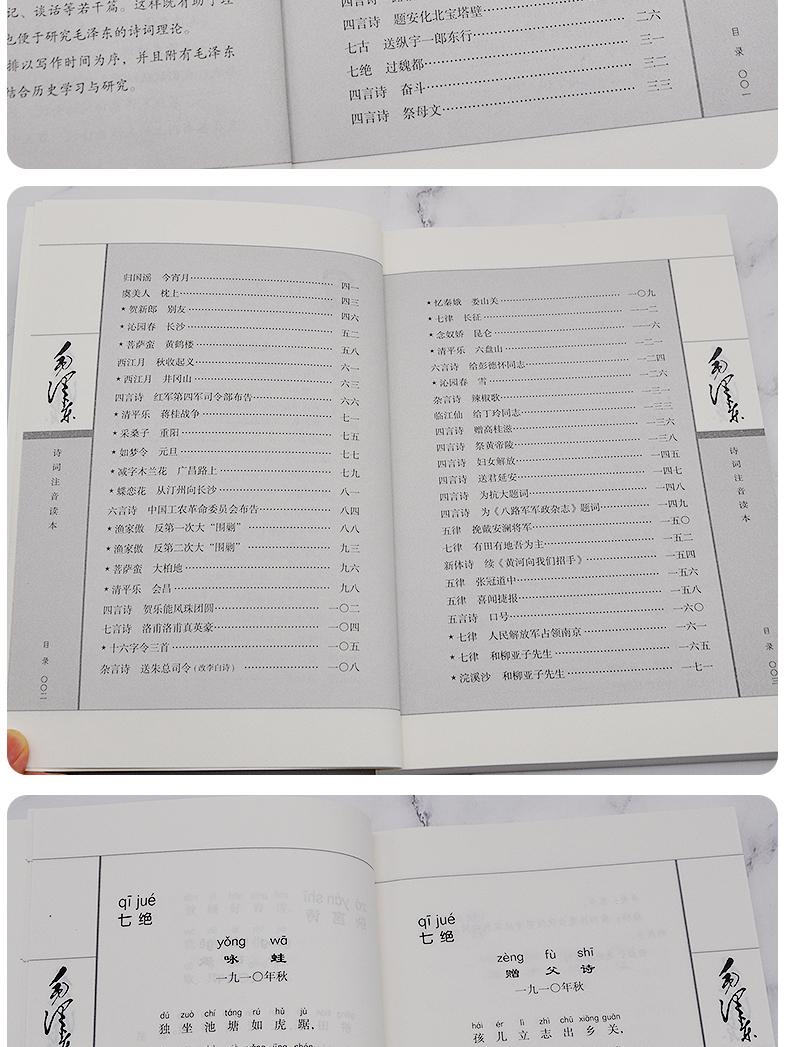 记、谈话等若干篇。这样既有助于理
也便于研究毛泽东的诗词理论。
排以写作时间为序，并且附有毛泽东
结合历史学习与研究。
四言诗 题安化北宝塔壁 二六
七古 送纵宇一郎东行 三一
七绝 过魏都 三二
四言诗 奋斗 三三
四言诗 祭母文
目录 〇〇一
归国谣 今宵月 四一
虞美人 枕上 四三
★贺新郎 别友 四六
★沁园春 长沙 五二
★菩萨蛮 黄鹤楼 五八
西江月 秋收起义 六一
★西江月 井冈山 六三
四言诗 红军第四军司令部布告 六六
★清平乐 蒋桂战争 七一
★采桑子 重阳 七五
★如梦令 元旦 七七
★减字木兰花 广昌路上 七九
★蝶恋花 从汀州向长沙 八一
六言诗 中国工农革命委员会布告 八四
★渔家傲 反第一次大“围剿” 八八
★渔家傲 反第二次大“围剿” 九三
★菩萨蛮 大柏地 九六
★清平乐 会昌 九八
四言诗 贺乐能风珠团圆 一〇二
七言诗 洛甫洛甫真英豪 一〇四
★十六字令三首 一〇五
杂言诗 送朱总司令（改李白诗） 一〇八
毛泽东
诗词注音读本
目录 〇〇二
★忆秦娥 娄山关 一〇九
★七律 长征 一一二
★念奴娇 昆仑 一一六
★清平乐 六盘山 一二一
六言诗 给彭德怀同志 一二四
★沁园春 雪 一二六
杂言诗 辣椒歌 一三一
临江仙 给丁玲同志 一三三
四言诗 赠高桂滋 一三六
四言诗 祭黄帝陵 一三八
四言诗 妇女解放 一四五
四言诗 送君延安 一四七
四言诗 为抗大题词 一四八
四言诗 为《八路军军政杂志》题词 一四九
五律 挽戴安澜将军 一五〇
七律 有田有地吾为主 一五二
新体诗 续《黄河向我们招手》 一五四
五律 张冠道中 一五六
五律 喜闻捷报 一五八
五言诗 口号 一六〇
★七律 人民解放军占领南京 一六一
★七律 和柳亚子先生 一六五
★浣溪沙 和柳亚子先生 一七一
毛泽东
诗词注音读本
目录 〇〇三
qī jué
七绝
yǒng wā
咏 蛙
一九一〇年秋
dú zuò chí táng rú hǔ jù
独坐池塘如虎踞，
毛泽东
qī jué
七绝
zèng fù shī
赠父诗
一九一〇年秋
hái ér lì zhì chū xiāng guān
孩儿立志出乡关，
毛泽东